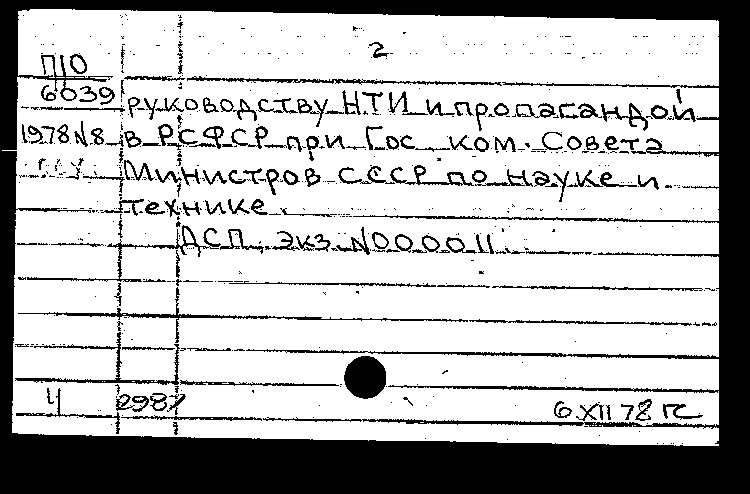 2
П10
6039 руководству НТИ и пропагандой
1978 N8 в РСФСР при Гос. ком. Совета
Министров СССР по науке и
технике.
ДСП. экз. N000011.
Ч 2987 6.XII 78 гс